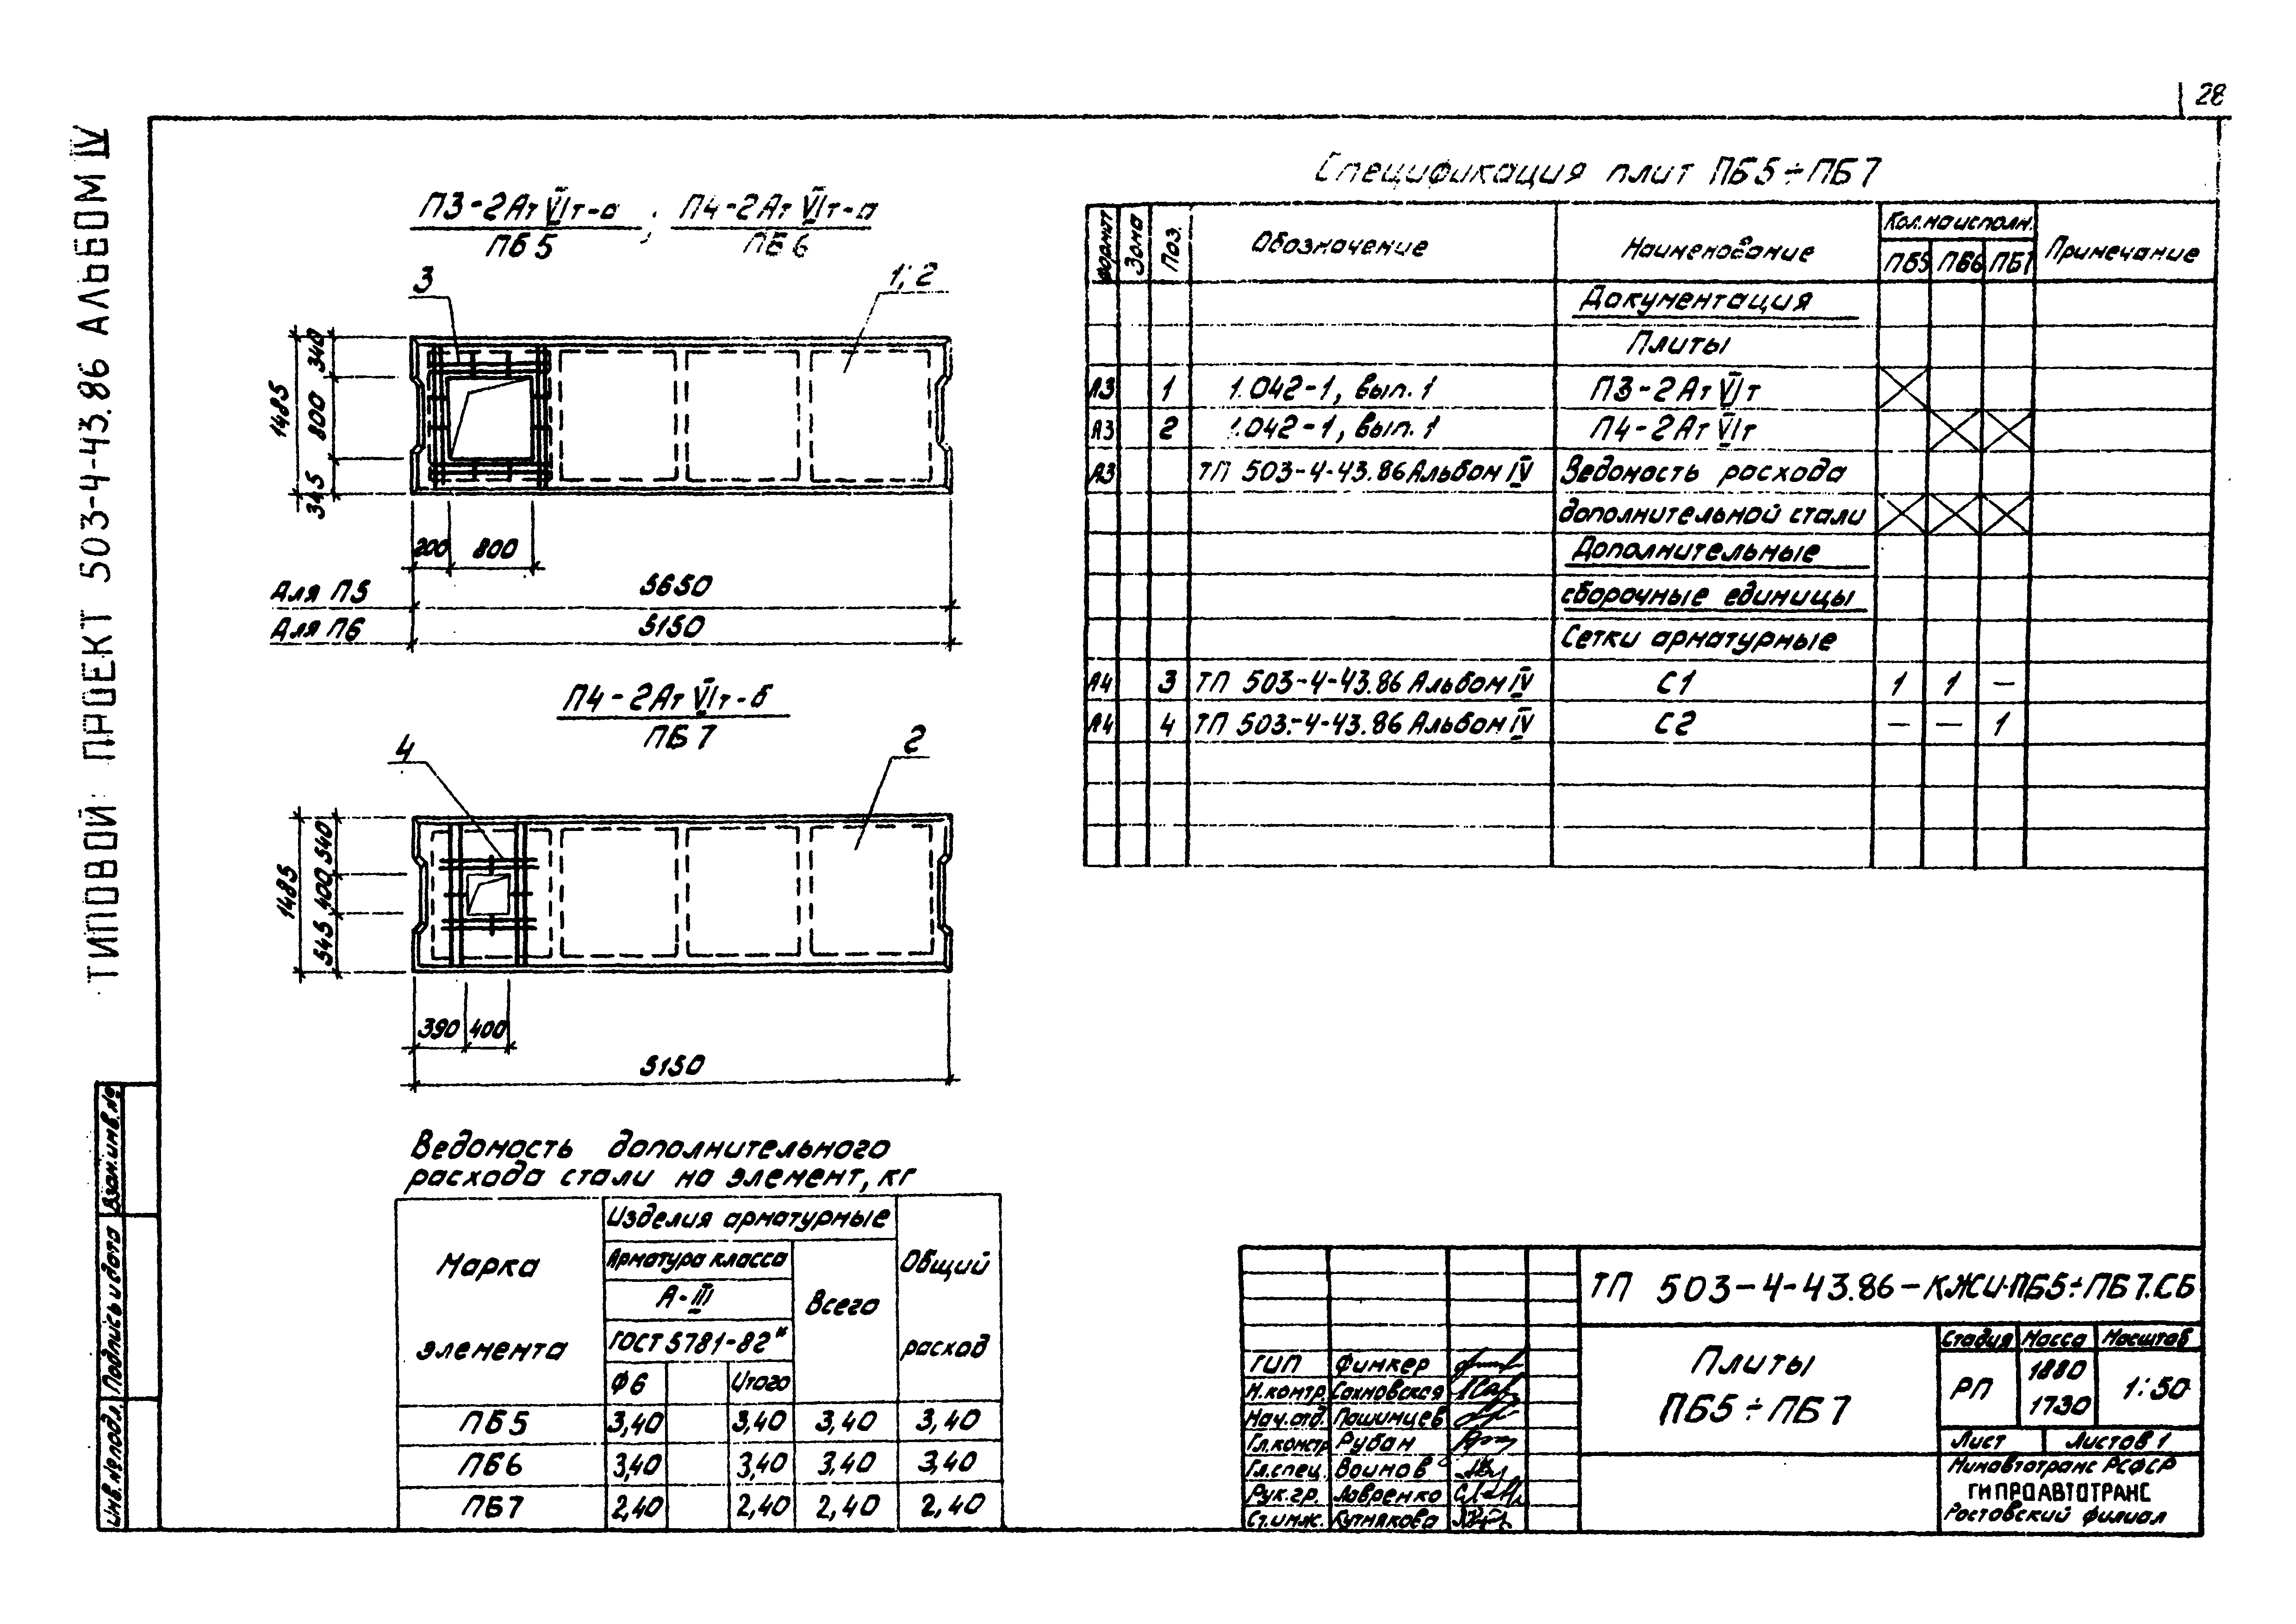 28
ТИПОВОЙ ПРОЕКТ 503-4-43.86 АЛЬБОМ IV
П3-2АтVIт-а ; П4-2АтVIт-а
ПБ5 ПБ6
3
1; 2
1485
340
800
345
200 800
Для П5 5650
Для П6 5150
П4-2АтVIт-б
ПБ7
4
2
1485
540
400
545
390 400
5150
Спецификация плит ПБ5÷ПБ7
Формат Зона Поз. Обозначение Наименование Кол. на исполн. Примечание
ПБ5 ПБ6 ПБ7
Документация
Плиты
А3 1 1.042-1, вып. 1 П3-2АтVIт
А3 2 1.042-1, вып. 1 П4-2АтVIт
А3 ТП 503-4-43.86 Альбом IV Ведомость расхода
дополнительной стали
Дополнительные
сборочные единицы
Сетки арматурные
А4 3 ТП 503-4-43.86 Альбом IV С1 1 1 —
А4 4 ТП 503-4-43.86 Альбом IV С2 — — 1
Ведомость дополнительного
расхода стали на элемент, кг
Марка элемента
Изделия арматурные
Арматура класса
А-III
ГОСТ 5781-82*
Ф6 Итого
Всего
Общий расход
ПБ5 3,40 3,40 3,40 3,40
ПБ6 3,40 3,40 3,40 3,40
ПБ7 2,40 2,40 2,40 2,40
Взам.инв.№
Подпись и дата
Инв.№ подл.
ТП 503-4-43.86-КЖИ-ПБ5÷ПБ7.СБ
ГИП Финкер
Н.контр. Сахновская
Нач.отд. Пошинцев
Гл.констр Рубан
Гл.спец. Воинов
Рук.гр. Лавренко
Ст.инж.
Плиты
ПБ5÷ПБ7
Стадия Масса Масштаб
РП 1880 1:50
1730
Лист Листов 1
Минавтотранс РСФСР
ГИПРОАВТОТРАНС
Ростовский филиал